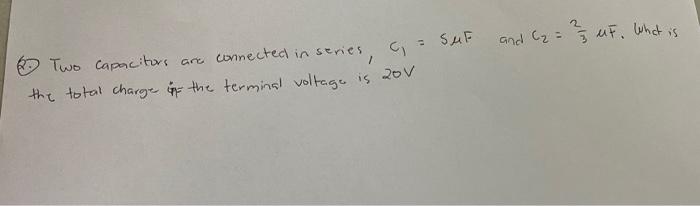 2. Two capacitors are connected in series, C₁ = 5μF and C₂ = 2/3 μF. What is
the total charge if the terminal voltage is 20V